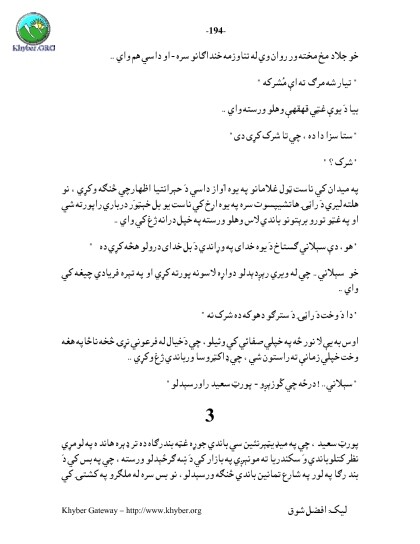 -194-
Khyber.ORG
خو جلاد مخ مخته ور روان وي له تناوزمه خنداګانو سره - او داسي هم واي ..
" تيار شه مرګ ته اې مُشرکه "
بيا دَ يوې غټې قهقهې وهلو ورسته واي ..
" ستا سزا دا ده ، چې تا شرک کړی دی "
" شرک ؟ "
په ميدان کي ناست ټول غلامانو په يوه آواز داسي دَ حيرانتيا اظهارچي څنګه وکړي ، نو
هلته ليرې دَ راڼۍ هاتشيپسوت سره په يوه اړخ کي ناست يو بل خټېور درباري راپورته شي
او په غټو تورو بريتونو باندي لاس وهلو ورسته په خپل درانه ژغ کي واي ..
" هو ، دې سېلاني ګستاخ دَ يوه خدای په وړاندي دَ بل خدای درولو هڅه کړې ده "
خو سېلاني .. چي له ويري رېږدېدلو دواړه لاسونه پورته کړي او په تېره فريادي چيغه کي
واي ..
" دا دَ وخت دَ راڼۍ دَ سترګو دهوکه ده شرک نه "
اوس به يې لا نور څه په خپلي صفائي کي وئيلو ، چي دَ خيال له فرعوني نړۍ څخه ناڅاپه هغه
وخت خپلي زمانې ته راستون شي ، چي ډاکټر وسا ورباندي ژغ وکړي ..
" سېلاني .. ! درځه چي کُوزېږو - پورټ سعيد راورسېدلو "
3
پورټ سعيد ، چي په ميډيټېرنئين سي باندي جوړه غټه بندرګاه ده تر ډېره هاند ه په لومړي
نظر کتلو باندي وَ سکندريا ته مونېږي په بازار کي دَ ښه ګرځېدلو ورسته ، چي په بس کي دَ
بندر ګا په لور په شارع تمانين باندي څنګه ورسېدلو ، نو بس سره له ملګرو په کشتۍ کي
Khyber Gateway – http://www.khyber.org
ليک: افضل شوق